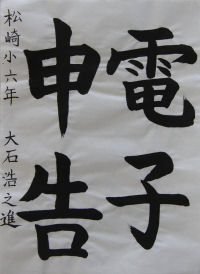 電子
申告
松崎小六年 大石浩之進